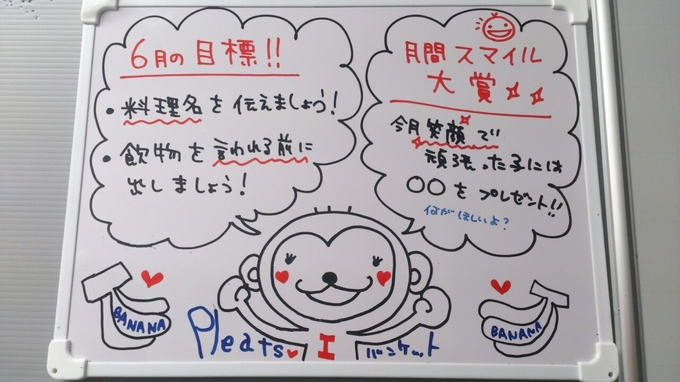 6月の目標!!
・料理名を伝えましょう!
・飲物を言われる前に
出しましょう!
月間スマイル
大賞
今月笑顔で
頑張った子には
○○をプレゼント!!
何がほしいよ?
BANANA
Pleats
I
バンケット
BANANA